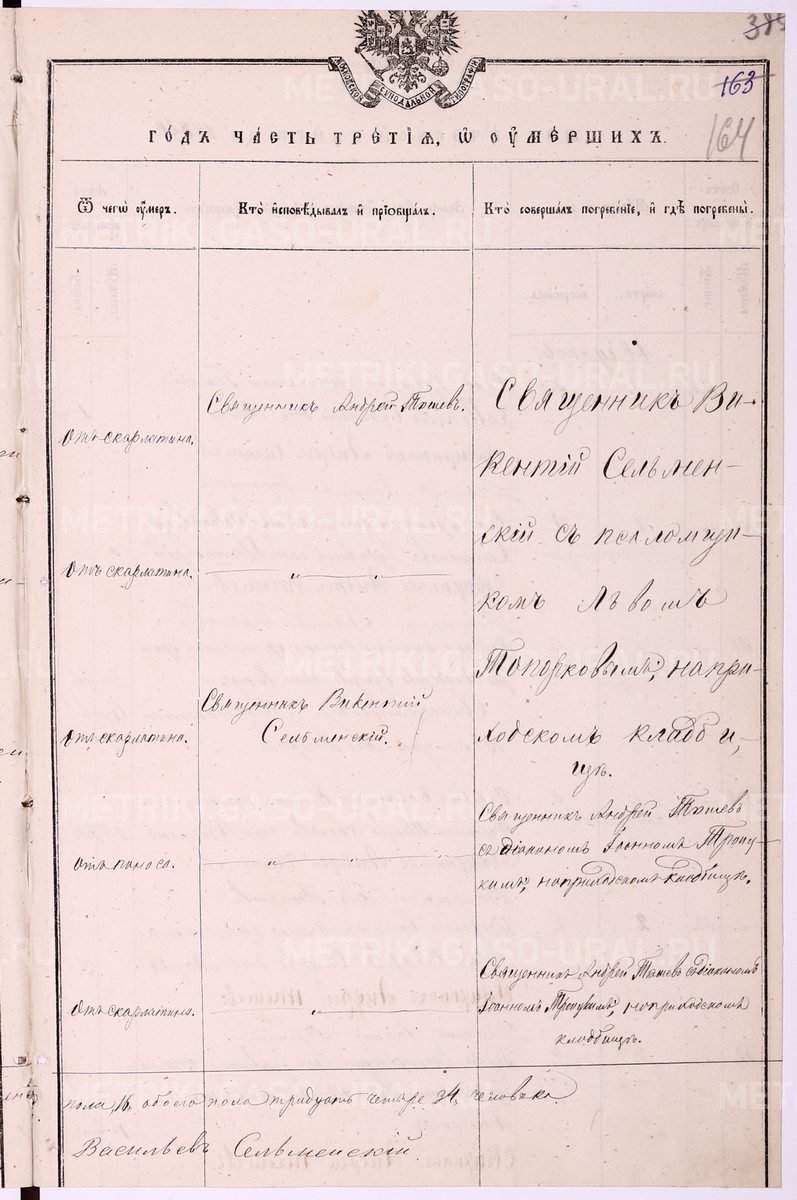 МОСКОВСКОЙ СѴНОДАЛЬНОЙ ТИПОГРАФІИ
385
163
164
ГО́ДЪ ЧА́СТЬ ТРЕ́ТІѦ, Ѡ҆ ОУ҆МЕ́РШИХЪ.
Ѿ чегѡ̀ оу҆́меръ.
Кто̀ и҆сповѣ́дывалъ и҆ прїѡбща́лъ.
Кто̀ соверша́лъ погребе́нїе, и҆ гдѣ̀ погребены̀.
Отъ скарлатина.
Священникъ Андрей Тошевъ.
Священникъ Ви-
кентій Сельмен-
скій съ псаломщи-
комъ Львомъ
Топорковымъ, на при-
ходскомъ кладби,
щѣ.
Отъ скарлатина.
— „ — „ —
Отъ скарлатина.
Священникъ Викентій
Сельменскій.
Отъ поноса.
— „ — „ —
Священникъ Андрей Тошевъ
съ діакономъ Іоанномъ
на приходскомъ кладбищѣ.
Отъ скарлатина.
— „ —
Священникъ Андрей Тошевъ съ діакономъ
Іоанномъ на приходскомъ
кладбищѣ.
пола, 16, обоего пола тридцать четыре 34, человека.
Васильевъ Сельменскій
METRIKI.GASO-URAL.RU